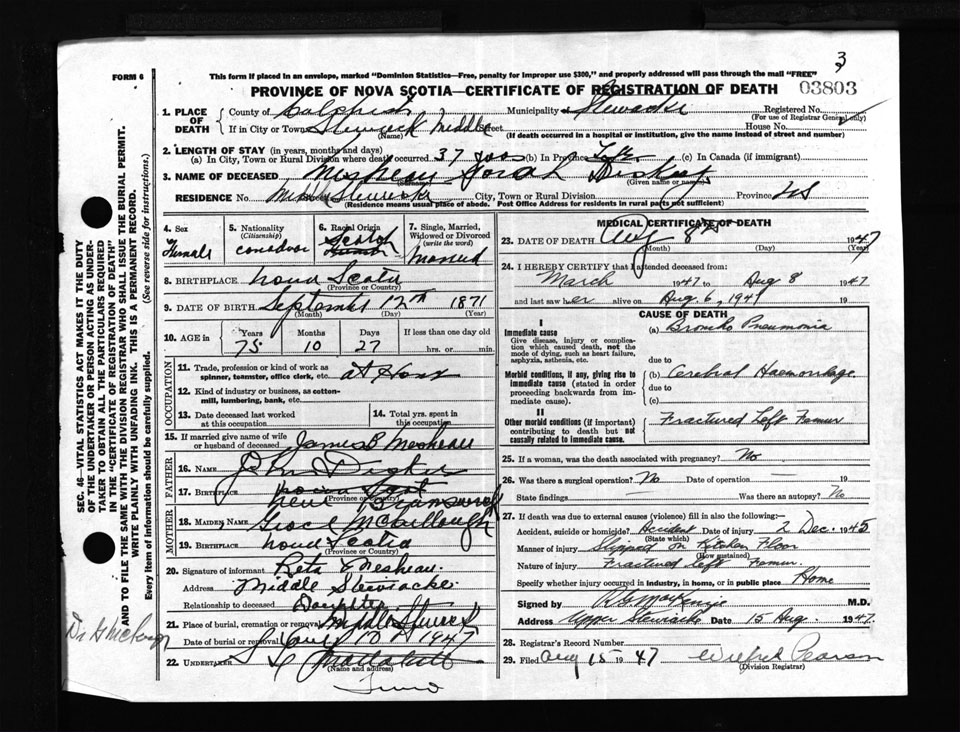 3
FORM 6
This form if placed in an envelope, marked "Dominion Statistics—Free, penalty for improper use $300," and properly addressed will pass through the mail "FREE"
PROVINCE OF NOVA SCOTIA—CERTIFICATE OF REGISTRATION OF DEATH
03803
1. PLACE OF DEATH
County of Colchester Municipality Stewiacke Registered No.
(For use of Registrar General only)
If in City or Town Stewiacke Middle Street House No.
(Name) (If death occurred in a hospital or institution, give the name instead of street and number)
2. LENGTH OF STAY (in years, months and days)
(a) In City, Town or Rural Division where death occurred 37 yrs (b) In Province Life (c) In Canada (if immigrant)
3. NAME OF DECEASED Sarah
(Surname) (Given name or names)
RESIDENCE No. Middle Stewiacke City, Town or Rural Division Province NS
(Residence means usual place of abode. Post Office Address for residents in rural parts not sufficient)
4. Sex
Female
5. Nationality
(Citizenship)
6. Racial Origin
Scotch
7. Single, Married, Widowed or Divorced
(write the word)
Married
8. BIRTHPLACE Nova Scotia
(Province or Country)
9. DATE OF BIRTH September 12th 1871
(Month) (Day) (Year)
10. AGE in
Years Months Days If less than one day old
75 10 27 hrs. or min.
OCCUPATION
11. Trade, profession or kind of work as spinner, teamster, office clerk, etc. at Home
12. Kind of industry or business, as cotton-mill, lumbering, bank, etc.
13. Date deceased last worked at this occupation
14. Total yrs. spent in this occupation
15. If married give name of wife or husband of deceased James B
FATHER
16. NAME John
17. BIRTHPLACE Nova Scot
(Province or Country)
New Brunswick
MOTHER
18. MAIDEN NAME McCullough
19. BIRTHPLACE Nova Scotia
(Province or Country)
20. Signature of informant Reta E
Address Middle Stewiacke
Relationship to deceased Daughter
21. Place of burial, cremation or removal Middle
Date of burial or removal Aug 10 1947
22. UNDERTAKER
(Name and address)
Truro
MEDICAL CERTIFICATE OF DEATH
23. DATE OF DEATH Aug 8th 1947
(Month) (Day) (Year)
24. I HEREBY CERTIFY that I attended deceased from:
March 1947 to Aug 8 1947
and last saw her alive on Aug. 6, 1947 19
CAUSE OF DEATH
I
Immediate cause
Give disease, injury or complication which caused death, not the mode of dying, such as heart failure, asphyxia, asthenia, etc.
(a) Broncho Pneumonia
due to
Morbid conditions, if any, giving rise to immediate cause (stated in order proceeding backwards from immediate).
(b) Cerebral Haemorrhage
due to
(c)
II
Other morbid conditions (if important) contributing to death but not causally related to immediate cause.
Fractured Left Femur
25. If a woman, was the death associated with pregnancy? No
26. Was there a surgical operation? No Date of operation — 19
State findings — Was there an autopsy? No
27. If death was due to external causes (violence) fill in also the following:—
Accident, suicide or homicide? Accident Date of injury 2 Dec. 1945
(State which)
Manner of injury Slipped on Kitchen Floor
(How sustained)
Nature of injury Fractured Left Femur.
Specify whether injury occurred in industry, in home, or in public place Home
Signed by MacKenzie M.D.
Address Upper Stewiacke Date 15 Aug. 1947.
28. Registrar's Record Number
29. Filed Aug 15 1947 Wilfred Pearson
(Division Registrar)
SEC. 46—VITAL STATISTICS ACT MAKES IT THE DUTY OF THE UNDERTAKER OR PERSON ACTING AS UNDERTAKER TO OBTAIN ALL THE PARTICULARS REQUIRED IN THE "CERTIFICATE OF REGISTRATION OF DEATH"
AND TO FILE THE SAME WITH THE DIVISION REGISTRAR WHO SHALL ISSUE THE BURIAL PERMIT.
WRITE PLAINLY WITH UNFADING INK. THIS IS A PERMANENT RECORD.
Every item of information should be carefully supplied. (See reverse side for instructions.)